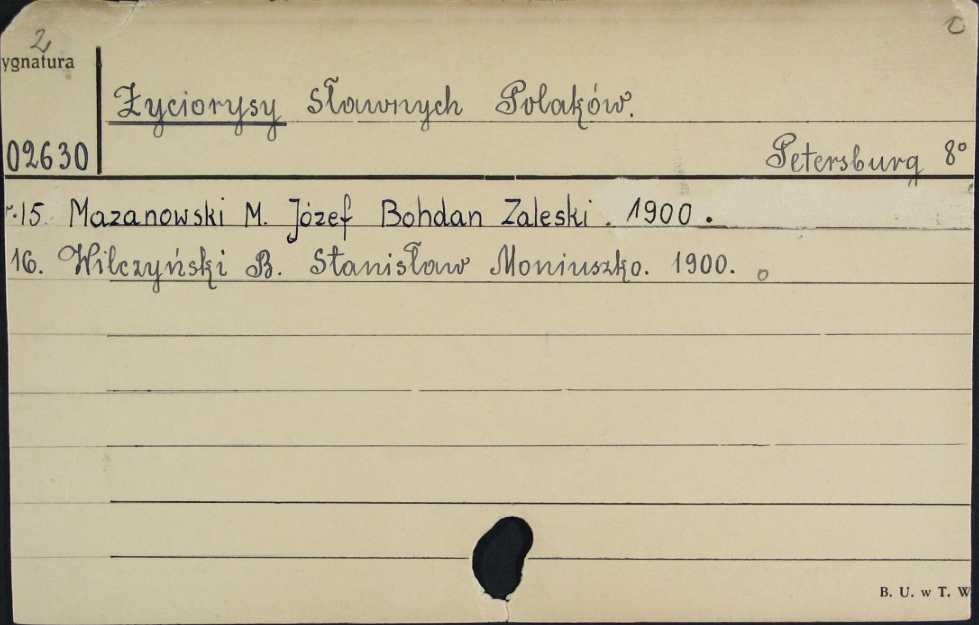 2
ygnatura
Życiorysy Sławnych Polaków.
02630
Petersburg 8°
r.15. Mazanowski M. Józef Bohdan Zaleski. 1900.
16. Wilczyński B. Stanisław Moniuszko. 1900.
B. U. w T. W